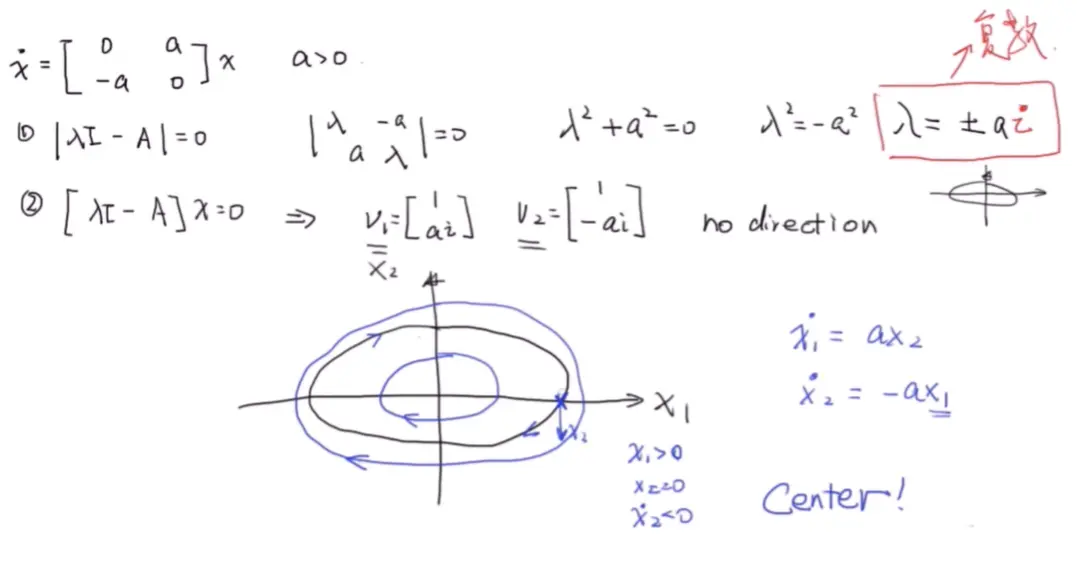 复数
ẋ = [0 a; -a 0] x   a>0
① |λI - A|=0   |λ -a; a λ|=0   λ²+a²=0   λ²=-a²   λ= ±ai
② [λI - A]x=0 ⇒ v₁=[1; ai]   v₂=[1; -ai]   no direction
x₂
ẋ₁ = ax₂
ẋ₂ = -ax₁
x₁
ẋ₂
x₁>0
x₂=0
ẋ₂<0
Center!